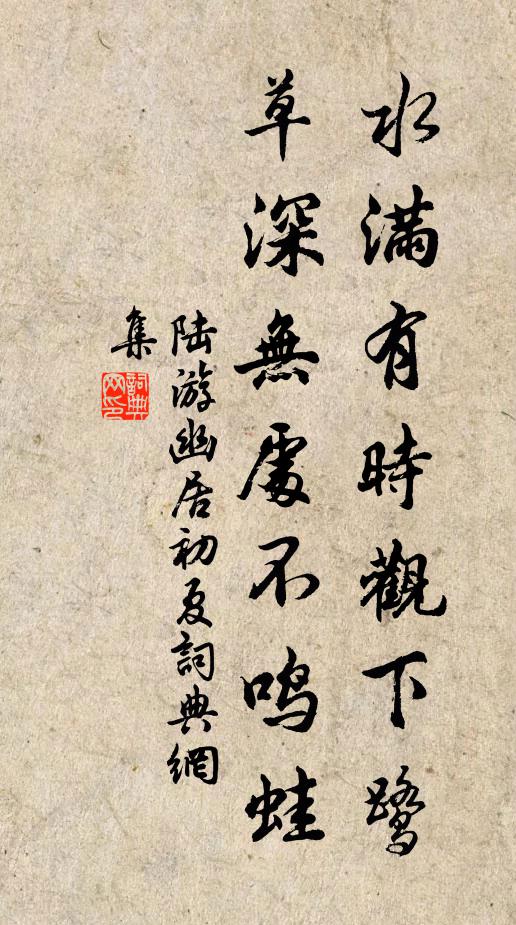 水滿有時觀下鷺
草深無處不鳴蛙
陆游幽居初夏詞典網
集
詞典
网印